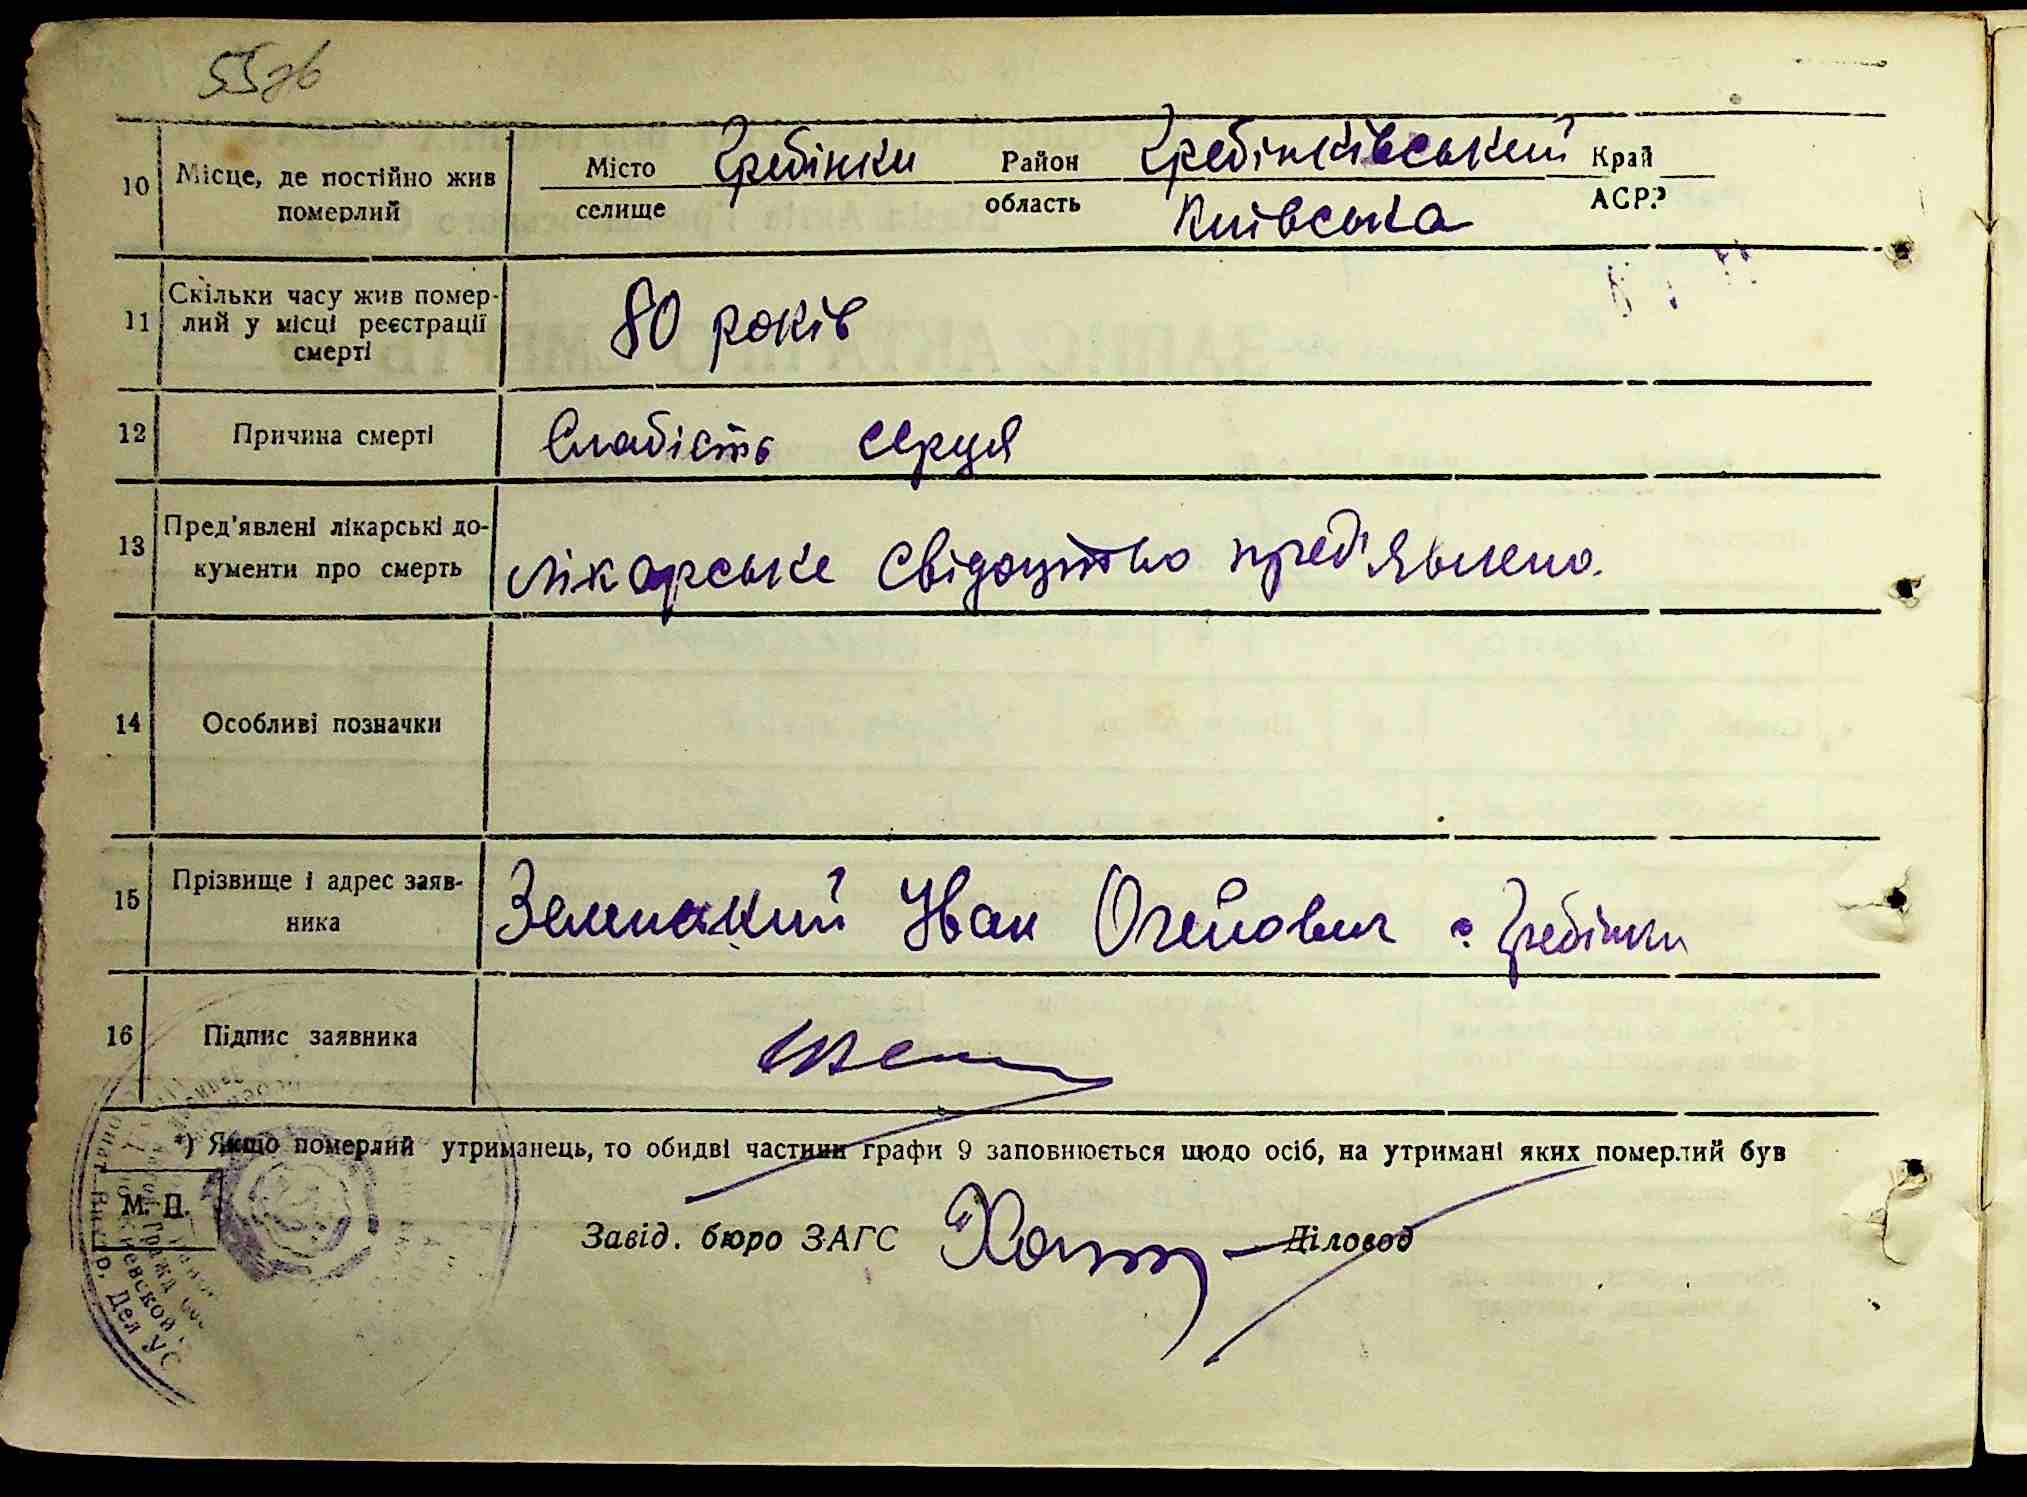 55зв
10 Місце, де постійно жив
померлий
Місто Гребінки Район Гребінківський Край
селище область Київська АСРР
11 Скільки часу жив помер-
лий у місці реєстрації
смерті
80 років
12 Причина смерті Слабість серця
13 Пред'явлені лікарські до-
кументи про смерть
лікарське свідоцтво пред'явлено.
14 Особливі позначки
15 Прізвище і адрес заяв-
ника
Іван с. Гребінки
16 Підпис заявника
*) Якщо померлий утриманець, то обидві частини графи 9 заповнюється щодо осіб, на утримані яких померлий був
М. П.
Завід. бюро ЗАГС Діловод